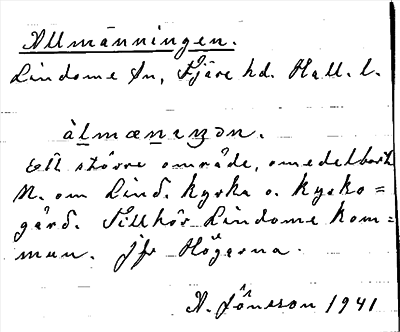 Allmänningen.
Lindome sn, Fjäre hd. Hall. l.
àlmæneŋən.
Ett större område, omedelbart
N. om Lind. kyrka o. kyrko=
gård. Tillhör Lindome kom=
mun. jfr Högarna.
A. Jönsson 1941